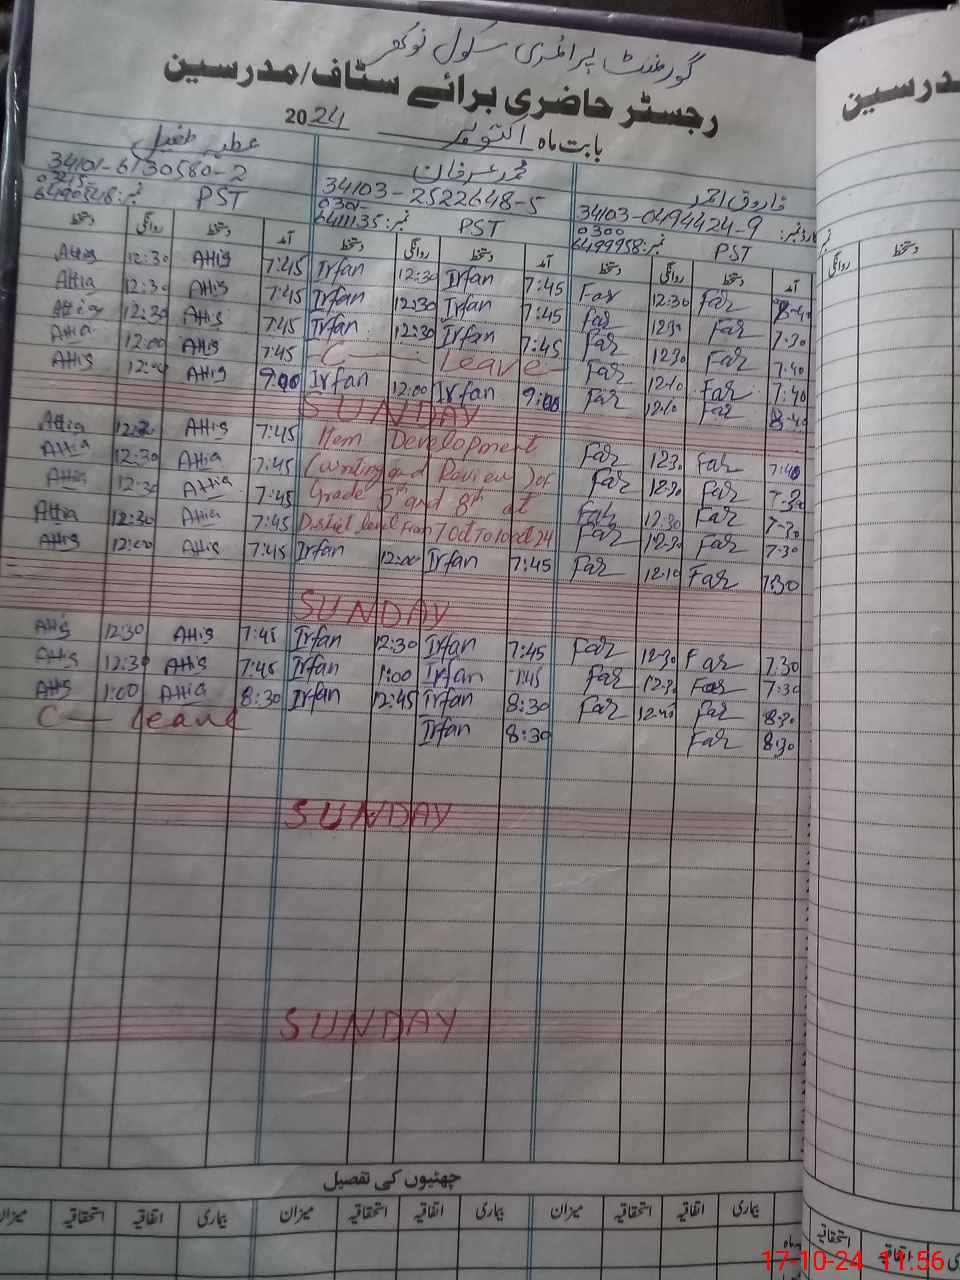 گورنمنٹ پرائمری سکول
رجسٹر حاضری برائے سٹاف/مدرسین
مدرسین
بابت ماہ اکتوبر 2024
فاروق احمد
34103-0494424-9
0300
6499958 نمبر: PST
محمد عرفان
34103-2522648-5
0301-
6411135 نمبر: PST
عطیہ طفیل
34101-6130580-2
نمبر: PST
آمد دستخط روانگی دستخط آمد دستخط روانگی دستخط آمد دستخط روانگی دستخط
روانگی دستخط
Attia 12:30 Attia 7:45 Irfan 12:30 Irfan 7:45 Far 12:30 Far 8-40
Attia 12:30 Attia 7:45 Irfan 12:30 Irfan 7:45 Far 12:30 Far 7.30
Attia 12:30 Attia 7:45 Irfan 12:30 Irfan 7:45 Far 12:30 Far 7:40
Attia 12:00 Attia 7:45 C — Leave Far 12:10 Far 7:40
Attia 12:00 Attia 9:00 Irfan 12:00 Irfan 9:00 Far 12:10 Far 8-40
SUNDAY
Attia Attia 7:45 Item Development Far 12:30 Far 7:40
Attia 12:30 Attia 7:45 (writing and Review) of Far 12:30 Far 7-30
Attia 12:30 Attia 7:45 Grade 5th and 8th at Far 12:30 Far 7-30
Attia 12:30 Attia 7:45 District level From 7 Oct To 10 oct 24 Far 12:30 Far 7:30
Attia 12:00 Attia 7:45 Irfan 12:00 Irfan 7:45 Far 12:10 Far 7:30
SUNDAY
Attia 12:30 Attia 7:45 Irfan 12:30 Irfan 7:45 Far 12:30 Far 7.30
Attia 12:30 Attia 7:45 Irfan 1:00 Irfan 7:45 Far 12:30 Far 7:30
Attia 1:00 Attia 8:30 Irfan 12:45 Irfan 8:30 Far 12:40 Far 8:30
C — leave Irfan 8:30 Far 8:30
SUNDAY
SUNDAY
چھٹیوں کی تفصیل
بیماری اتفاقیہ استحقاقیہ میزان بیماری اتفاقیہ استحقاقیہ میزان بیماری اتفاقیہ استحقاقیہ میزان
اتفاقیہ استحقاقیہ
17-10-24 11:56